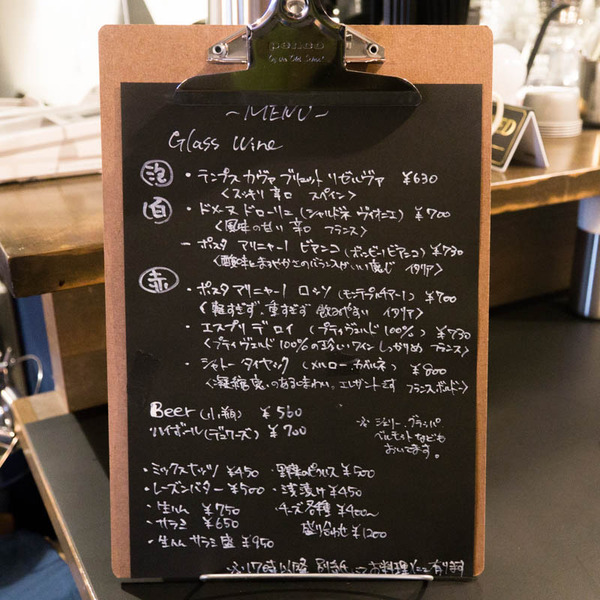 penco
~MENU~
Glass Wine
泡 ・テンプス カヴァ ブリュット リゼルヴァ ¥630
〈スッキリ辛口 スペイン〉
白 ・ドメーヌ ドローリエ (シャルドネ ヴィオニエ) ¥700
〈風味の甘い辛口 フランス〉
ポスタ アリニャーノ ビアンコ ¥730
〈酸味とまろやかさのバランスがいい感じ イタリア〉
赤 ・ポスタ アリニャーノ ロッソ ¥700
〈軽すぎず、重すぎず 飲みやすい イタリア〉
・エスプリ デ ロイ (プティヴェルド 100%) ¥730
〈プティヴェルド 100%の珍しいワイン しっかりめ フランス〉
・シャトー タイヤック (メルロー、カベルネ) ¥800
エレガントです フランス、ボルドー〉
Beer (小瓶) ¥560
ハイボール (デュワーズ) ¥700
※ シェリー、グラッパ
ベルモットなども
おいてます。
・ミックスナッツ ¥450 ・野菜のピクルス ¥500
・レーズンバター ¥500 ・浅漬け ¥450
・生ハム ¥750 ・チーズ各種 ¥400~
・サラミ ¥650 盛り合わせ ¥1200
・生ハム サラミ盛 ¥950
※17時以降 別紙 お料理 有ります